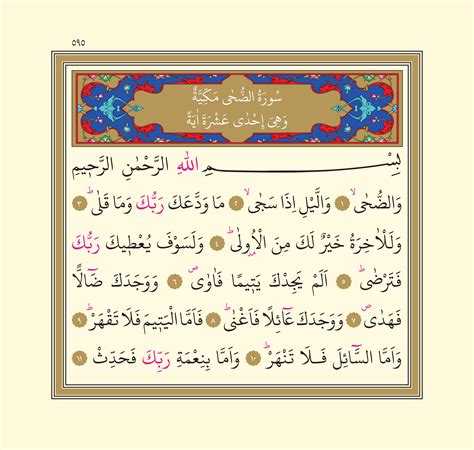 ٥٩٥
سُورَةُ الضُّحٰى مَكِّيَّةٌ
وَهِيَ اِحْدٰى عَشْرَةَ اٰيَةً
بِسْمِ اللهِ الرَّحْمٰنِ الرَّحٖيمِ
وَالضُّحٰىۙ ١ وَالَّيْلِ اِذَا سَجٰىۙ ٢ مَا وَدَّعَكَ رَبُّكَ وَمَا قَلٰىۜ ٣
وَلَلْاٰخِرَةُ خَيْرٌ لَكَ مِنَ الْاُو۫لٰىۜ ٤ وَلَسَوْفَ يُعْطٖيكَ رَبُّكَ
فَتَرْضٰىۜ ٥ اَلَمْ يَجِدْكَ يَتٖيمًا فَاٰوٰىۖ ٦ وَوَجَدَكَ ضَٓالًّا
فَهَدٰىۖ ٧ وَوَجَدَكَ عَٓائِلًا فَاَغْنٰىۜ ٨ فَاَمَّا الْيَتٖيمَ فَلَا تَقْهَرْۜ ٩
وَاَمَّا السَّٓائِلَ فَلَا تَنْهَرْۜ ١٠ وَاَمَّا بِنِعْمَةِ رَبِّكَ فَحَدِّثْ ١١